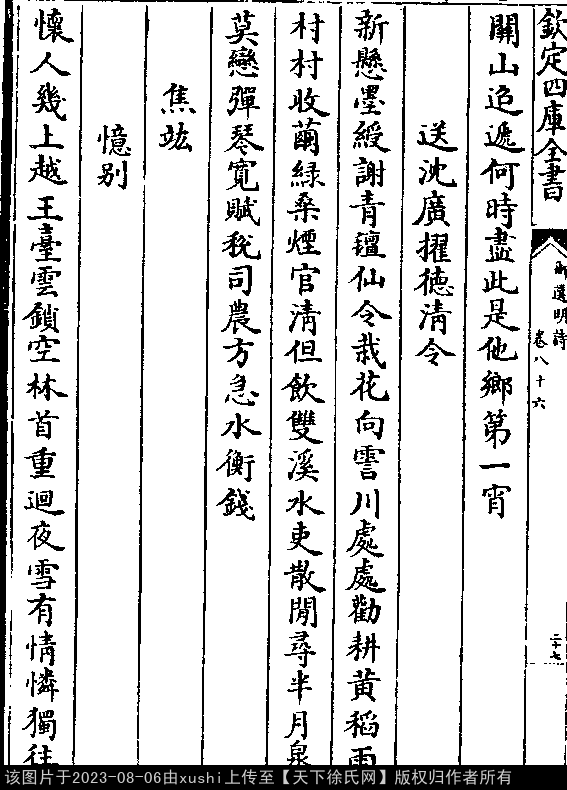 欽定四庫全書
御選明詩
卷八十六
二十七
關山迢遞何時盡此是他鄉第一宵
送沈廣擢德清令
新懸墨綬謝青氊仙令栽花向霅川處處勸耕黃稻雨
村村收繭綠桑煙官清但飲雙溪水吏散閒尋半月泉
莫戀彈琴寬賦稅司農方急水衡錢
焦竑
憶别
懷人幾上越王臺雲鎖空林首重迴夜雪有情憐獨往
该图片于2023-08-06由xushi上传至【天下徐氏网】版权归作者所有